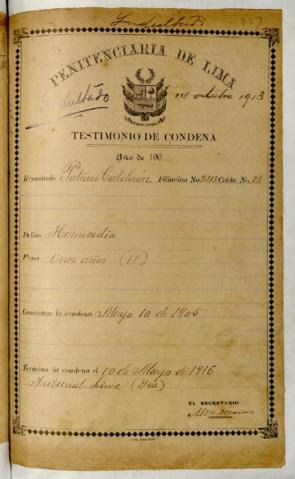 Indultado
327
PENITENCIARIA DE LIMA
Indultado
14 octubre 1913
TESTIMONIO DE CONDENA
Año de 190
Rematado Patricio Calderón Filiación No. 2113 Celda No. 28
Delito Homicidio
Pena Once años (11)
Comienza la condena Mayo 10 de 1905
Termina la condena el 10 de Mayo de 1916
Tribunal Lima (Ica)
EL SECRETARIO